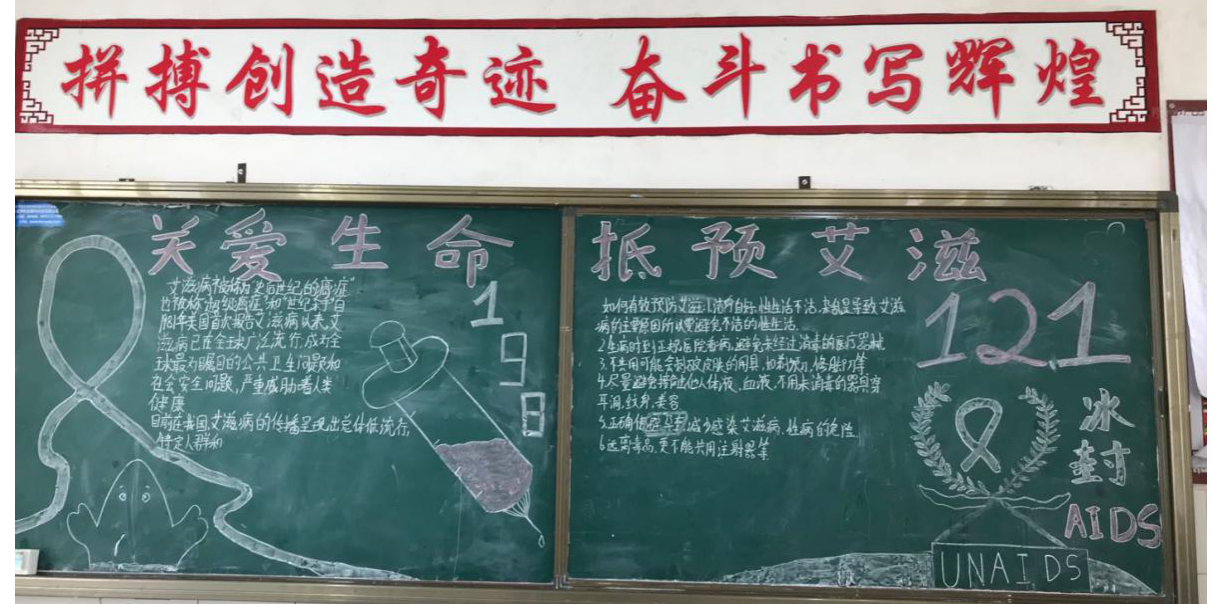 拼搏创造奇迹 奋斗书写辉煌
关爱生命
艾滋病被称为"世纪的癌症"
也被称"超级癌症"和"世纪杀手"自
1981年美国首次报告艾滋病以来,艾
滋病已在全球广泛流行,成为全
球最为瞩目的公共卫生问题和
社会安全问题,严重威胁着人类
健康
目前在我国,艾滋病的传播呈现出总体低流行,
特定人群和
1
9
8
抵预艾滋
如何有效预防艾滋:1.洁身自好,性生活不洁、紊乱是导致艾滋
病的主要原因所以要避免不洁的性生活.
2.生病时到正规医院看病,避免未经过消毒的医疗器械
3.不共用可能会刺破皮肤的用具,如剃须刀、修脚刀等
4.尽量避免接触他人体液、血液,不用未消毒的器具穿
耳洞、纹身、美容
5.正确使用 减少感染艾滋病、性病的危险
6.远离毒品,更不能共用注射器等
12.1
冰
封
AIDS
UNAIDS